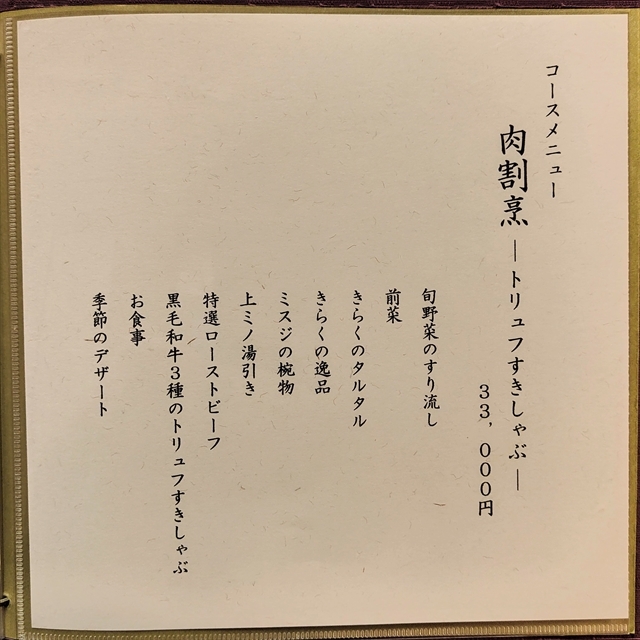 コースメニュー
肉割烹 ―トリュフすきしゃぶ―
33,000円
旬野菜のすり流し
前菜
きらくのタルタル
きらくの逸品
ミスジの椀物
上ミノ湯引き
特選ローストビーフ
黒毛和牛3種のトリュフすきしゃぶ
お食事
季節のデザート